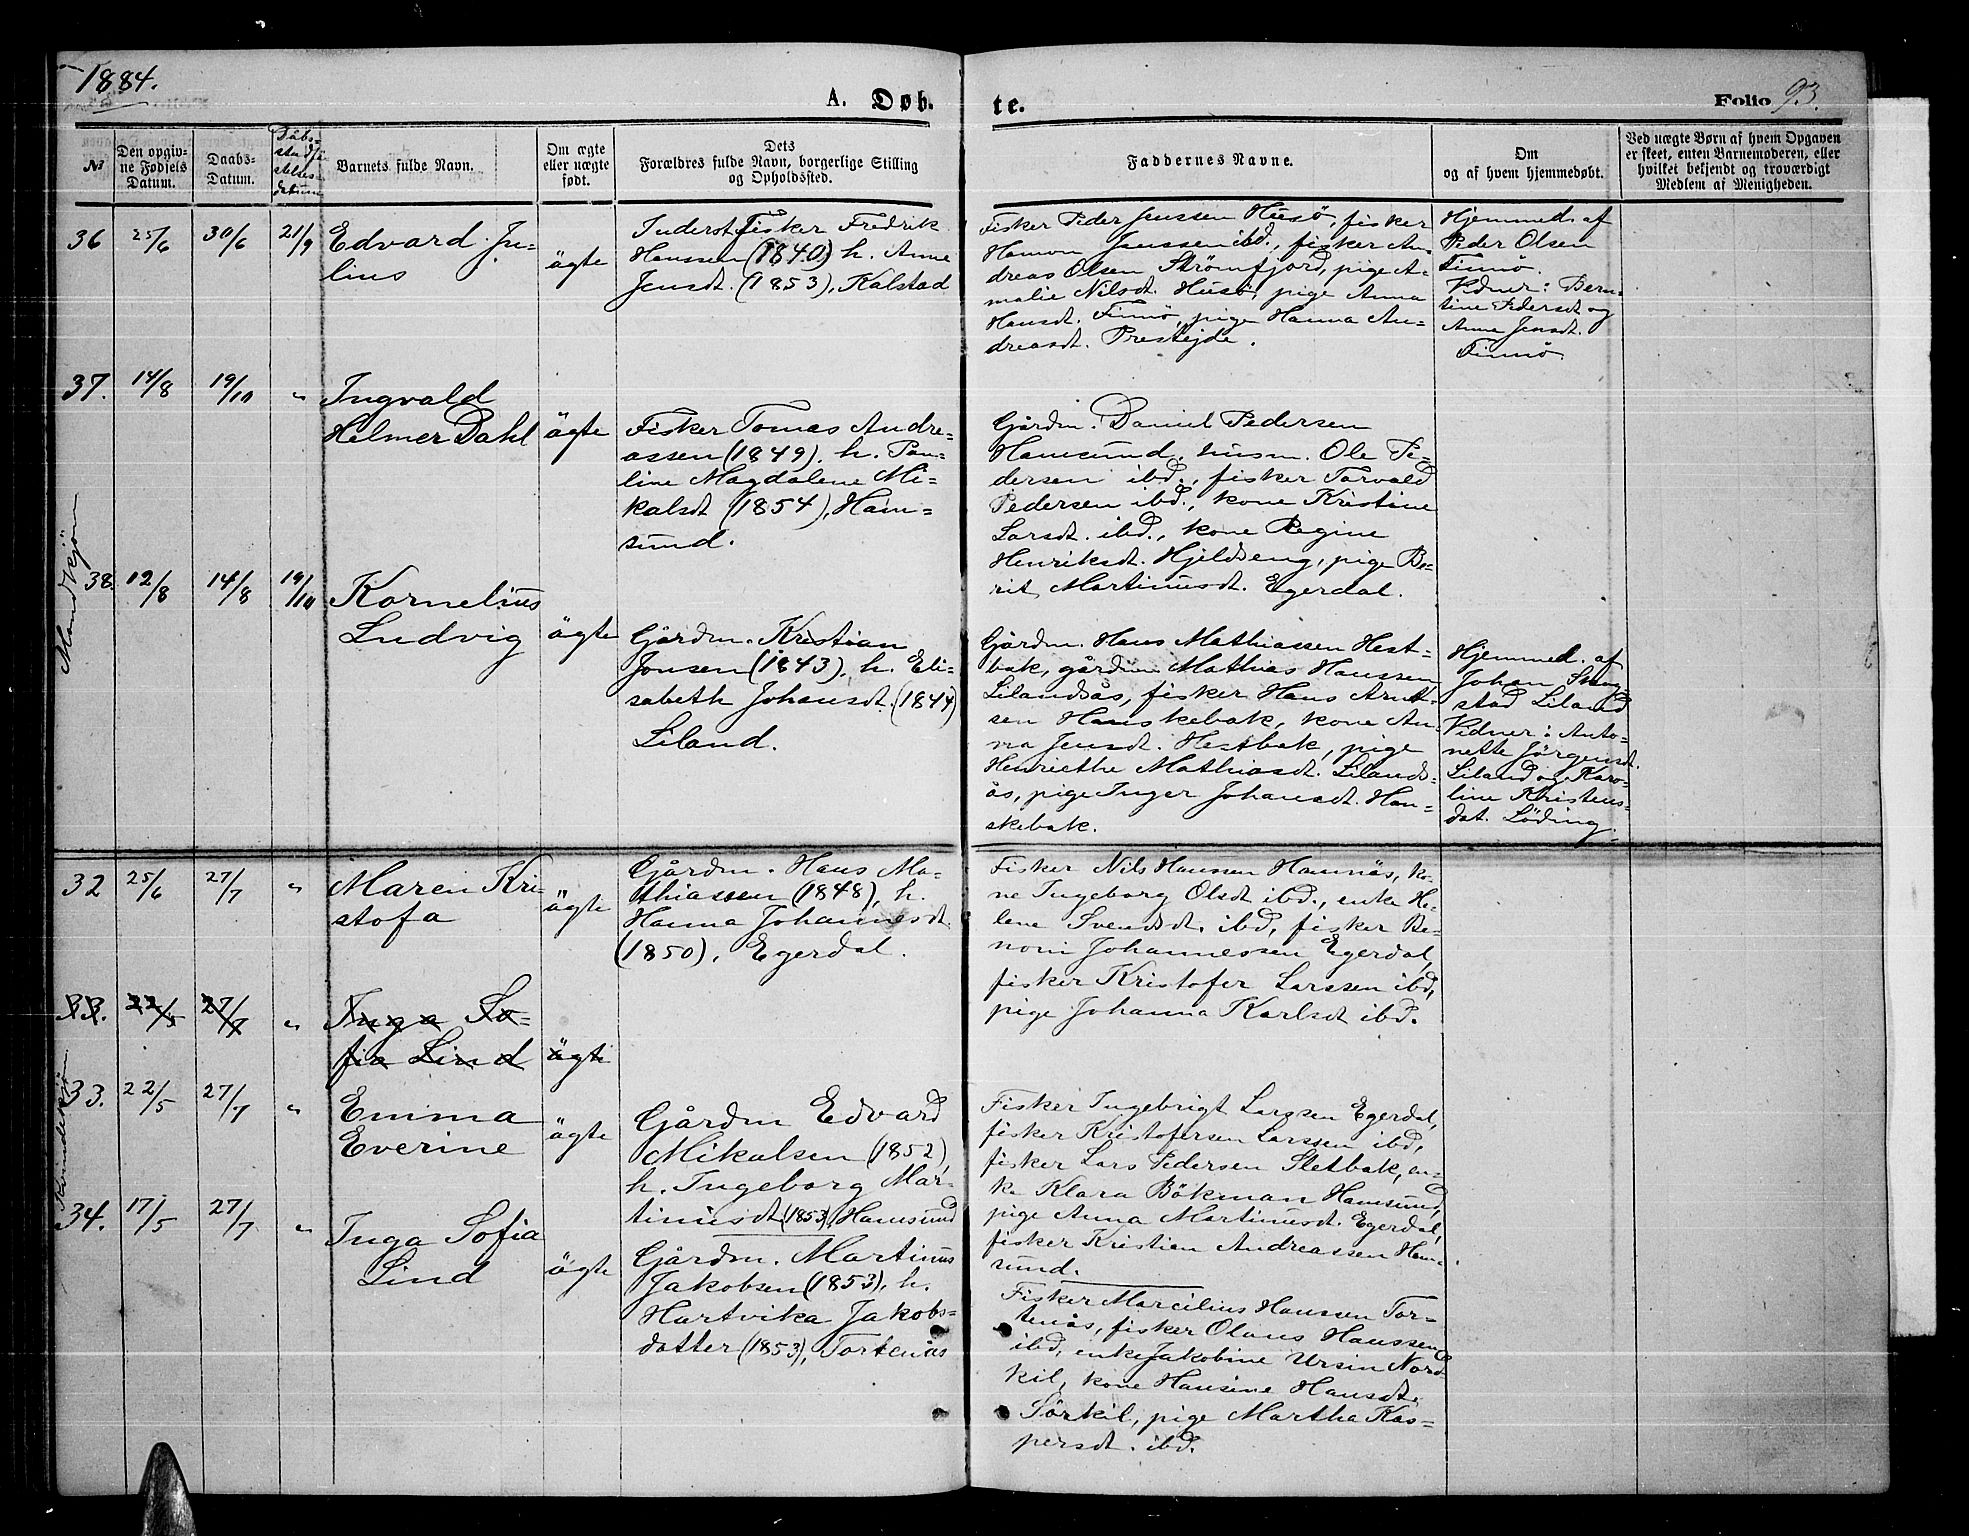 1884.
A. Døb-
te.
Folio 93.
№
Den opgiv-
ne Fødsels
Datum.
Daabs-
Datum.
Dåbs-
stadfæ
stelses
datum
Barnets fulde Navn.
Om ægte
eller nægte
født.
Dets
Forældres fulde Navn, borgerlige Stilling
og Opholdssted.
Faddernes Navne.
Om
og af hvem hjemmedøbt.
Ved nægte Børn af hvem Opgaven
er skeet, enten Barnemoderen, eller
hvilket bekjendt og troværdigt
Medlem af Menigheden.
Mandkjøn
36
25/6
30/6
21/9
Edvard Ju-
lius
ägte
Inderst, Fisker Fredrik
Hanssen (1840) h. Anne
Jensdt. (1853), Kalstad
Fisker Peder Jenssen Husö, fisker
Hamon Jenssen ibd., fisker An-
dreas Olsen Strömfjord, pige A-
malie Nilsdt. Husö, pige Anna
Hansdt. Finnö, pige Hanna An-
dreasdt. Presteide.
Hjemmed. af
Peder Olsen
Finnö.
Vidner: Bern-
tine Pedersdt og
Anna Jensdt.
Finnö
37.
14/8
19/10
"
Ingvald
Helmer Dahl
ägte
Fisker Tomas Andre-
assen (1849). h. Pau-
line Magdalene Mi-
kalsdt (1854), Ham-
sund.
Gårdm. Daniel Pedersen
Hamsund, husm. Ole Pe-
dersen ibd., fisker Torvald
Pedersen ibd., kone Kristine
Larsdt. ibd., kone Regine
Henriksdt. Hjeldseng, pige Be-
rit Martinusdt. Egerdal.
38.
12/8
14/8
19/10
Kornelius
Ludvig
ägte
Gårdm. Kristian
Jonsen (1843), h. Eli-
sabeth Johansdt. (1844)
Liland.
Gårdm. Hans Mathiassen Hest-
bak, gårdm Mathias Hanssen
Lilandsås, fisker Hans Arnt-
sen Hanskebak, kone An-
na Jensdt. Hestbak, pige
Henriethe Mathiasdt. Lilands-
ås, pige Inger Johansdt. Han-
skebak.
Hjemmed. af
Johan
stad Liland
Vidner: Anto-
nette Jörgensdt.
Liland og Karo-
line Kristens-
dat. Löding.
Kvindekjøn
32
25/6
27/7
"
Maren Kri-
stofa
ägte
Gårdm. Hans Ma-
thiassen (1848), h.
Hanna Johannesdt.
(1850), Egerdal.
Fisker Nils Hanssen Hamnäs, ko-
ne Ingeborg Olsdt ibd., enke He-
lene Svendsdt. ibd, fisker Be-
noni Johannessen Egerdal,
fisker Kristofer Larssen ibd,
pige Johanna Karlsdt ibd.
33.
22/5
27/7
"
Inga So-
fia Lind
ägte
33.
22/5
27/7
"
Emma
Everine
ägte
Gårdm Edvard
Mikalsen (1852),
h. Ingeborg Mar-
tinusdt. (1853) Hamsund
Fisker Ingebrigt Larssen Egerdal,
fisker Kristofersen Larssen ibd,
fisker Lars Pedersen Sletbak, en-
ke Klara Bökman Hamsund,
pige Anna Martinusdt. Egerdal,
fisker Kristian Andreassen Ham-
sund.
34.
17/5
27/7
"
Inga Sofia
Lind
ägte
Gårdm. Martinus
Jakobsen (1853), h.
Hartvika Jakobs-
datter (1853), Tortenäs
Fisker Marcilius Hanssen Tor-
tenäs, fisker Olaus Hanssen
ibd, enke Jakobine Ursin Nord-
kil, kone Hansine Hansdt.
Sörkil, pige Martha Kas-
persdt. ibd.